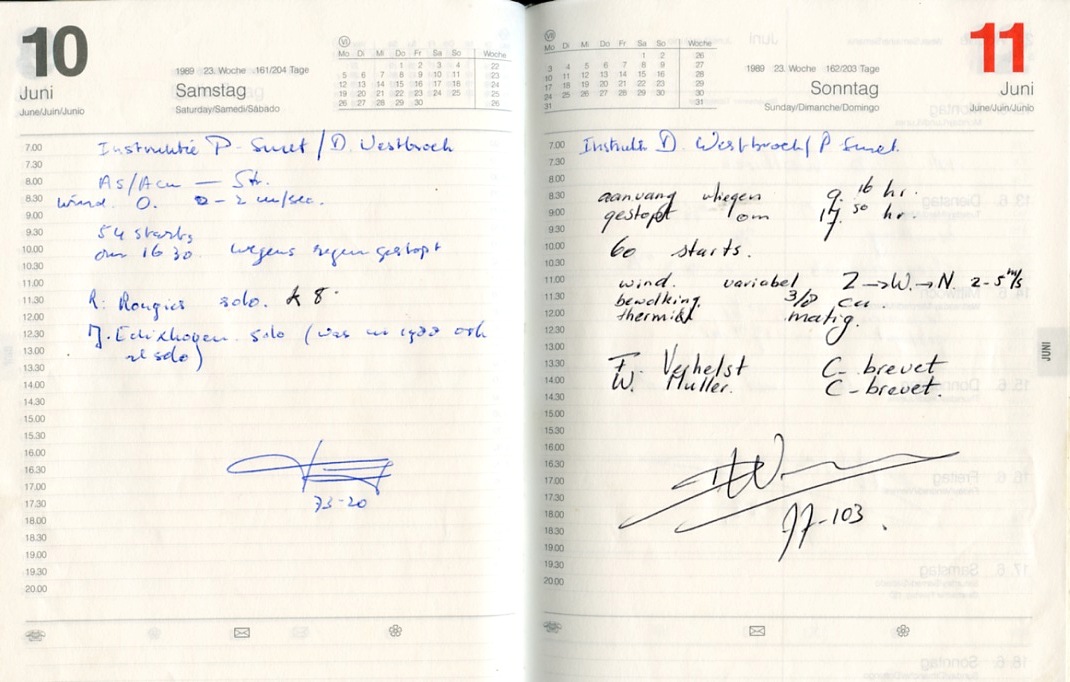 10
Juni
June/Juin/Junio
1989 23. Woche 161/204 Tage
Samstag
Saturday/Samedi/Sábado
VI
Mo Di Mi Do Fr Sa So Woche
1 2 3 4 22
5 6 7 8 9 10 11 23
12 13 14 15 16 17 18 24
19 20 21 22 23 24 25 25
26 27 28 29 30 26
7.00 Instruktie P. Smet / D. Westbroek
7.30
8.00 As/Acu — Str.
8.30 wind. O. 0-2 m/sec.
9.00
9.30 54 starts
10.00 om 16 30 wegens regen gestopt
10.30
11.00
11.30 R. solo. K 8.
12.00
12.30 J. Edixhoven solo (was in 1988 ook
13.00 al solo)
13.30
14.00
14.30
15.00
15.30
16.00
16.30
17.00
17.30 73-20
18.00
18.30
19.00
19.30
20.00
VII
Mo Di Mi Do Fr Sa So Woche
1 2 26
3 4 5 6 7 8 9 27
10 11 12 13 14 15 16 28
17 18 19 20 21 22 23 29
24 25 26 27 28 29 30 30
31 31
1989 23. Woche 162/203 Tage
Sonntag
Sunday/Dimanche/Domingo
11
Juni
June/Juin/Junio
7.00 Instrukti D. Westbroek / P Smet.
7.30
8.00
8.30 aanvang vliegen 9.16 hr.
9.00 gestopt om 17.50 hr
9.30
10.00 60 starts.
10.30
11.00 wind. variabel Z → W. → N. 2-5 m/s
11.30 bewolking 3/8 cu.
12.00 thermiek matig.
12.30
13.00
13.30 F. Verhelst C- brevet
14.00 W. Muller. C- brevet.
14.30
15.00
15.30
16.00
16.30
17.00
17.30
18.00 77-103.
18.30
19.00
19.30
20.00
JUNI